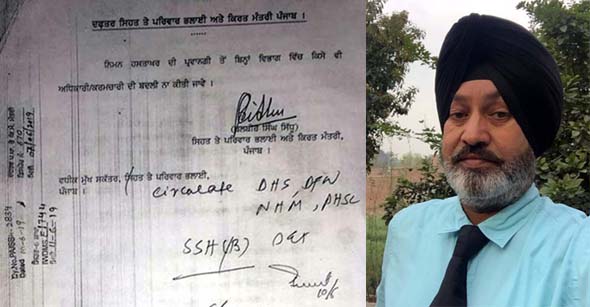 ਦਫਤਰ ਸਿਹਤ ਤੇ ਪਰਿਵਾਰ ਭਲਾਈ ਅਤੇ ਕਿਰਤ ਮੰਤਰੀ ਪੰਜਾਬ ।
ਨਿਮਨ ਹਸਤਾਖਰ ਦੀ ਪ੍ਰਵਾਨਗੀ ਤੋਂ ਬਿਨ੍ਹਾਂ ਵਿਭਾਗ ਵਿੱਚ ਕਿਸੇ ਵੀ
ਅਧਿਕਾਰੀ/ਕਰਮਚਾਰੀ ਦੀ ਬਦਲੀ ਨਾ ਕੀਤੀ ਜਾਵੇ ।
(ਬਲਬੀਰ ਸਿੰਘ ਸਿੱਧੂ)
ਸਿਹਤ ਤੇ ਪਰਿਵਾਰ ਭਲਾਈ ਅਤੇ ਕਿਰਤ ਮੰਤਰੀ,
ਪੰਜਾਬ ।
ਵਧੀਕ ਮੁੱਖ ਸਕੱਤਰ, ਸਿਹਤ ਤੇ ਪਰਿਵਾਰ ਭਲਾਈ,
ਪੰਜਾਬ ।
Circulate DHS, DFW
NHM, PHSC
SSH
10/6
Dated